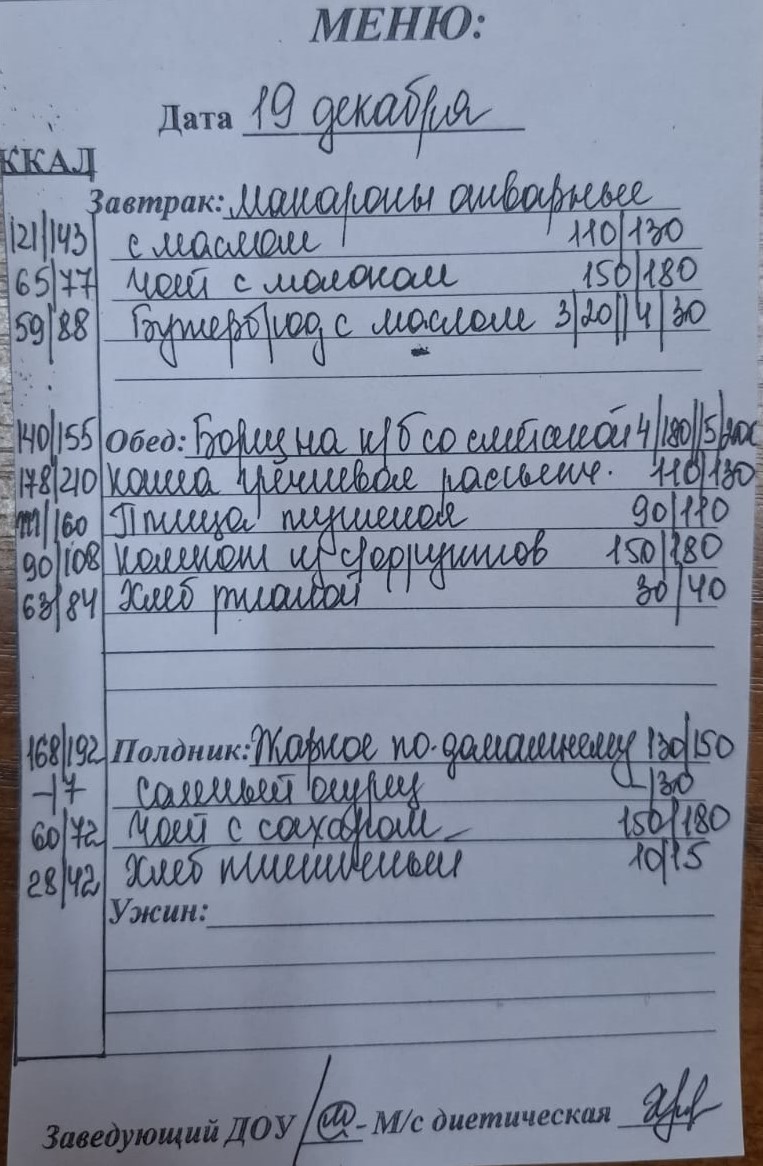 МЕНЮ:
Дата 19 декабря
ККАЛ
Завтрак: Макароны отварные
121/143 с маслом 110/130
65/77 Чай с молоком 150/180
59/88 Бутерброд с маслом 3/20//4/30
140/155 Обед: Борщ на к/б со сметаной 4/180//5/200
178/210 Каша гречневая рассыпч. 110/130
Птица тушеная 90/110
90/108 Компот из с/фруктов 150/180
63/84 Хлеб ржаной 30/40
168/192 Полдник: Жаркое по-домашнему 130/150
-/7 Соленый огурец -/30
60/72 Чай с сахаром 150/180
28/42 Хлеб пшеничный 10/15
Ужин:
Заведующий ДОУ - М/с диетическая